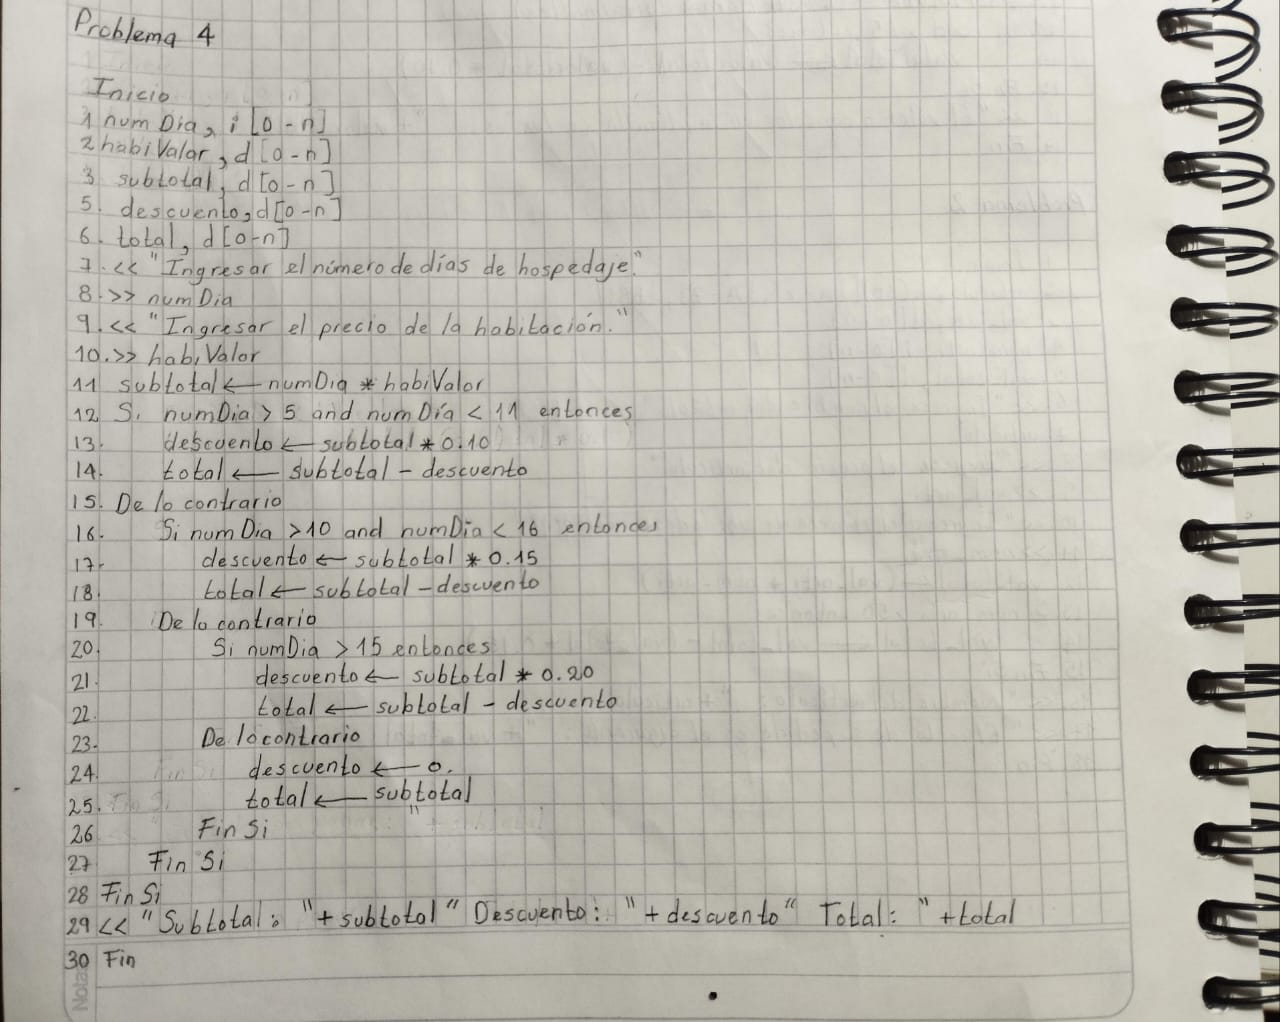 Problema 4
Inicio
1 numDia, i [0-n]
2 habiValor, d [0-n]
3 subtotal, d [0-n]
5. descuento, d[0-n]
6. total, d [0-n]
7. << "Ingresar el número de días de hospedaje."
8. >> numDia
9. << "Ingresar el precio de la habitación."
10. >> habiValor
11 subtotal ← numDia * habiValor
12 Si numDia > 5 and numDía < 11 entonces
13. descuento ← subtotal * 0.10
14. total ← subtotal - descuento
15. De lo contrario
16. Si numDia > 10 and numDia < 16 entonces
17. descuento ← subtotal * 0.15
18. total ← subtotal - descuento
19. De lo contrario
20. Si numDia > 15 entonces
21. descuento ← subtotal * 0.20
22. total ← subtotal - descuento
23. De lo contrario
24. descuento ← 0.
25. total ← subtotal
26 Fin Si
27 Fin Si
28 Fin Si
29 << "Subtotal: "+ subtotal " Descuento: "+ descuento " Total: " + total
30 Fin
Nota